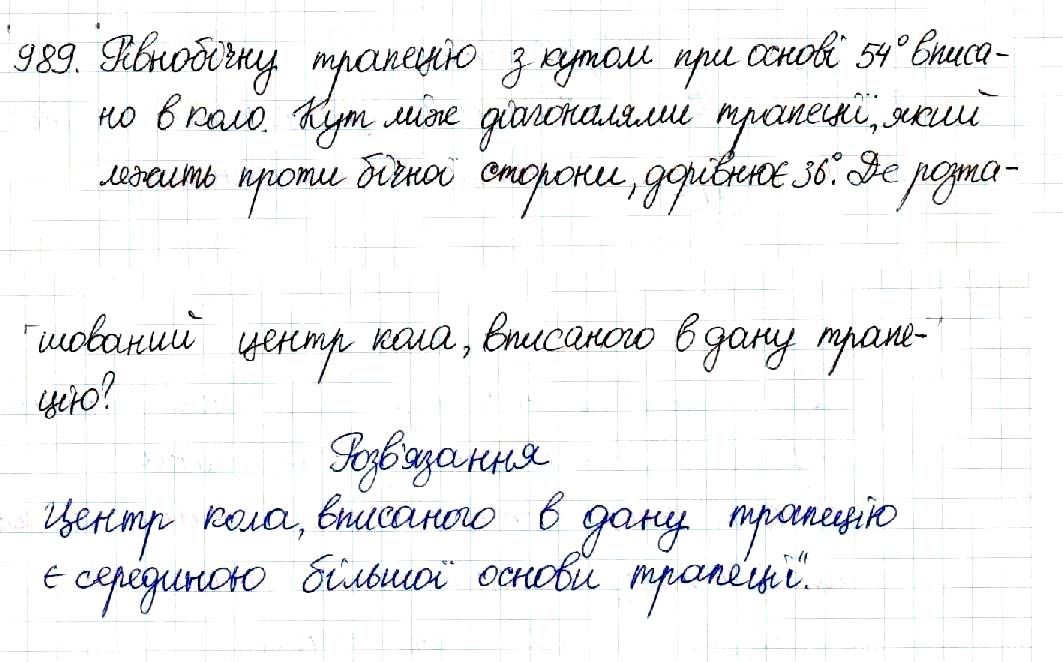 989. Рівнобічну трапецію з кутом при основі 54° вписа-
но в коло. Кут між діагоналями трапеції, який
лежить проти бічної сторони, дорівнює 36°. Де розта-
шований центр кола, вписаного в дану трапе-
цію?
Розв'язання
Центр кола, вписаного в дану трапецію
є серединою більшої основи трапеції.